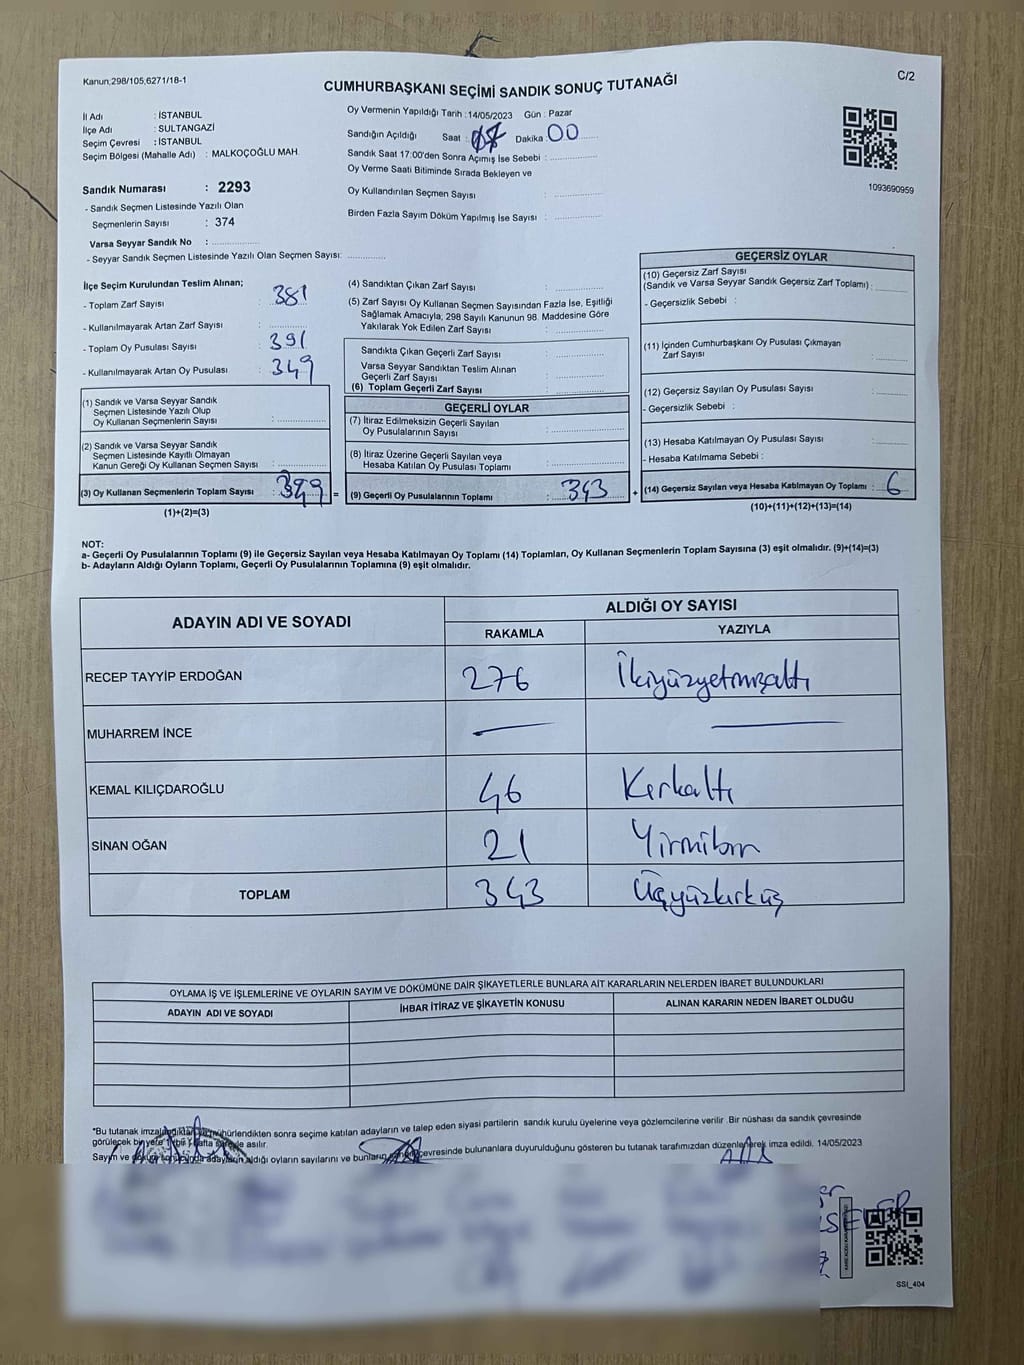 Kanun;298/105,6271/18-1
CUMHURBAŞKANI SEÇİMİ SANDIK SONUÇ TUTANAĞI
C/2
İl Adı : İSTANBUL
İlçe Adı : SULTANGAZİ
Seçim Çevresi : İSTANBUL
Seçim Bölgesi (Mahalle Adı) : MALKOÇOĞLU MAH.
Sandık Numarası : 2293
- Sandık Seçmen Listesinde Yazılı Olan
Seçmenlerin Sayısı : 374
Varsa Seyyar Sandık No :
- Seyyar Sandık Seçmen Listesinde Yazılı Olan Seçmen Sayısı:
Oy Vermenin Yapıldığı Tarih :14/05/2023 Gün : Pazar
Sandığın Açıldığı Saat : Dakika : 00
Sandık Saat 17:00'den Sonra Açımış İse Sebebi :
Oy Verme Saati Bitiminde Sırada Bekleyen ve
Oy Kullandırılan Seçmen Sayısı :
Birden Fazla Sayım Döküm Yapılmış İse Sayısı :
1093690959
İlçe Seçim Kurulundan Teslim Alınan;
- Toplam Zarf Sayısı : 381
- Kullanılmayarak Artan Zarf Sayısı :
- Toplam Oy Pusulası Sayısı : 391
- Kullanılmayarak Artan Oy Pusulası : 349
(1) Sandık ve Varsa Seyyar Sandık
Seçmen Listesinde Yazılı Olup
Oy Kullanan Seçmenlerin Sayısı :
(2) Sandık ve Varsa Seyyar Sandık
Seçmen Listesinde Kayıtlı Olmayan
Kanun Gereği Oy Kullanan Seçmen Sayısı :
(3) Oy Kullanan Seçmenlerin Toplam Sayısı : 349 =
(1)+(2)=(3)
(4) Sandıktan Çıkan Zarf Sayısı :
(5) Zarf Sayısı Oy Kullanan Seçmen Sayısından Fazla İse, Eşitliği
Sağlamak Amacıyla, 298 Sayılı Kanunun 98. Maddesine Göre
Yakılarak Yok Edilen Zarf Sayısı :
Sandıkta Çıkan Geçerli Zarf Sayısı :
Varsa Seyyar Sandıktan Teslim Alınan
Geçerli Zarf Sayısı :
(6) Toplam Geçerli Zarf Sayısı :
GEÇERLİ OYLAR
(7) İtiraz Edilmeksizin Geçerli Sayılan
Oy Pusulalarının Sayısı :
(8) İtiraz Üzerine Geçerli Sayılan veya
Hesaba Katılan Oy Pusulası Toplamı :
(9) Geçerli Oy Pusulalarının Toplamı : 343 +
GEÇERSİZ OYLAR
(10) Geçersiz Zarf Sayısı
(Sandık ve Varsa Seyyar Sandık Geçersiz Zarf Toplamı) :
- Geçersizlik Sebebi :
(11) İçinden Cumhurbaşkanı Oy Pusulası Çıkmayan
Zarf Sayısı :
(12) Geçersiz Sayılan Oy Pusulası Sayısı :
- Geçersizlik Sebebi :
(13) Hesaba Katılmayan Oy Pusulası Sayısı :
- Hesaba Katılmama Sebebi :
(14) Geçersiz Sayılan veya Hesaba Katılmayan Oy Toplamı : 6
(10)+(11)+(12)+(13)=(14)
NOT:
a- Geçerli Oy Pusulalarının Toplamı (9) ile Geçersiz Sayılan veya Hesaba Katılmayan Oy Toplamı (14) Toplamları, Oy Kullanan Seçmenlerin Toplam Sayısına (3) eşit olmalıdır. (9)+(14)=(3)
b- Adayların Aldığı Oyların Toplamı, Geçerli Oy Pusulalarının Toplamına (9) eşit olmalıdır.
ADAYIN ADI VE SOYADI
ALDIĞI OY SAYISI
RAKAMLA YAZIYLA
RECEP TAYYİP ERDOĞAN 276 İkiyüzyetmişaltı
MUHARREM İNCE — —
KEMAL KILIÇDAROĞLU 46 Kırkaltı
SİNAN OĞAN 21 Yirmibir
TOPLAM 343 Üçyüzkırküç
OYLAMA İŞ VE İŞLEMLERİNE VE OYLARIN SAYIM VE DÖKÜMÜNE DAİR ŞİKAYETLERLE BUNLARA AİT KARARLARIN NELERDEN İBARET BULUNDUKLARI
ADAYIN ADI VE SOYADI İHBAR İTİRAZ VE ŞİKAYETİN KONUSU ALINAN KARARIN NEDEN İBARET OLDUĞU
*Bu tutanak imzalandıktan ve mühürlendikten sonra seçime katılan adayların ve talep eden siyasi partilerin sandık kurulu üyelerine veya gözlemcilerine verilir. Bir nüshası da sandık çevresinde
görülecek bir yere 1 (bir) hafta süreyle asılır.
Sayım ve döküm sonucunda adayların aldığı oyların sayılarını ve bunların çevresinde bulunanlara duyurulduğunu gösteren bu tutanak tarafımızdan düzenlenerek imza edildi. 14/05/2023
SSI_404